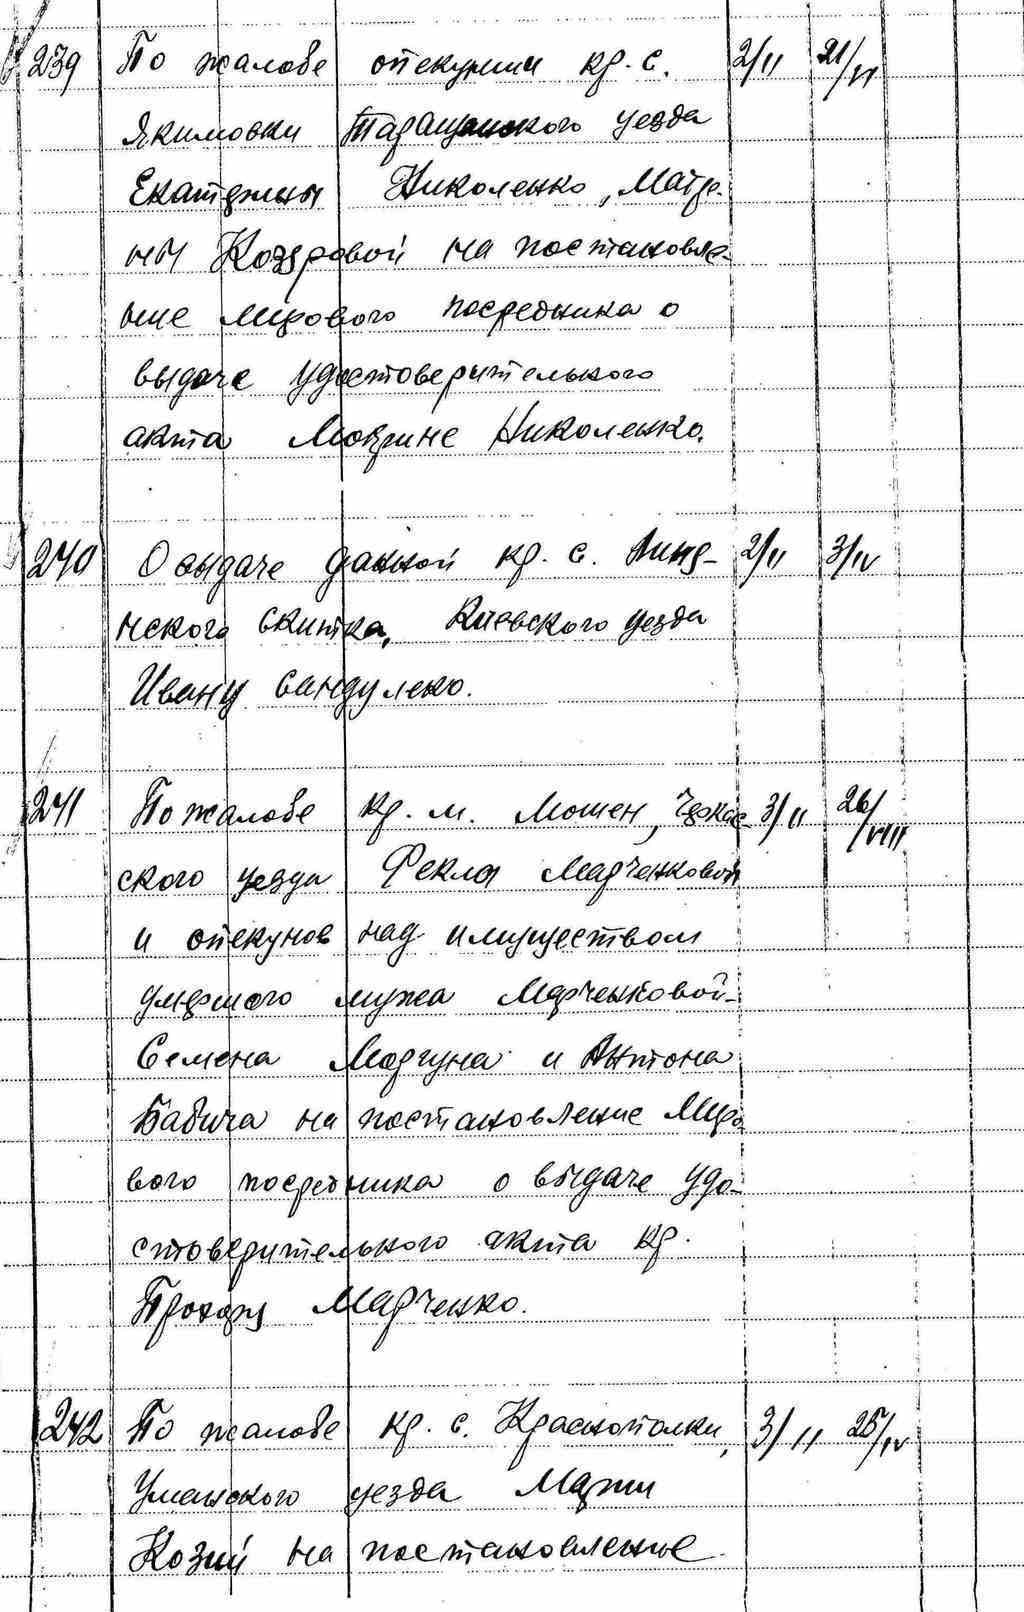 239 По жалобе опекунши кр. с. 2/II 21/VI
Якимовки Таращанского уезда
Екатерины Николенко, Матре-
ны Козыровой на постановле-
ние мирового посредника о
выдаче удостоверительного
акта Мокрине Николенко.
240 О выдаче данной кр. с. 2/II 3/IV
нского скитка, Киевского уезда
Ивану Сандулеко.
241 По жалобе кр. м. Мошен, Черкас- 3/II 26/VIII
ского уезда Фекла Марченковой
и опекунов над имуществом
умершого мужа Марченковой-
Семена Моргуна и Антона
Бабича на постановление Миро
вого посредника о выдаче удо-
стоверительного акта кр.
Прохору Марченко.
242 По жалобе кр. с. Краснополки, 3/II 25/IV
Уманского уезда Марии
Козий на постановление